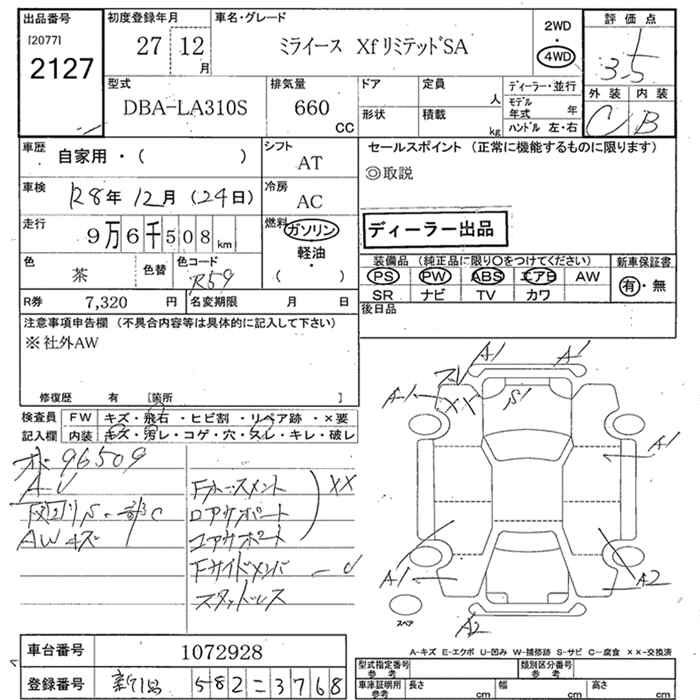 出品番号 初度登録年月 車名・グレード 評価点
[2077] 2127 27 12月 ミライース XfリミテッドSA 2WD 4WD 3.5
型式 排気量 ドア 定員 人 ディーラー・並行 外装 内装
DBA-LA310S 660 CC 形状 積載 kg モデル年式 年 ハンドル 左・右 C B
車歴 自家用・( ) シフト AT セールスポイント (正常に機能するものに限ります)
◎取説
車検 R8年12月(24日) 冷房 AC
走行 9万6千508km 燃料 ガソリン 軽油・( ) ディーラー出品
色 茶 色替 色コード R59 装備品 (純正品に限り○をつけてください) 新車保証書
PS PW ABS エアB AW 有・無
SR ナビ TV カワ
R券 7,320 円 名変期限 月 日 後日品
注意事項申告欄 (不具合内容等は具体的に記入して下さい)
※社外AW
修復歴 有 [箇所 ]
検査員 FW キズ・飛石・ヒビ割・リペア跡・×要
記入欄 内装 キズ・汚レ・コゲ・穴・スレ・キレ・破レ
96509
AU
AWキズ
Fクロースメント XX
ロアサポート
コアサポート
Fサイドメンバ - U
スタッドレス
A1 A1
A1 XX S1
A1
A1 A2
A2
スペア
A-キズ E-エクボ U-凹み W-補修跡 S-サビ C-腐食 XX-交換済
車台番号 1072928
登録番号 582-3768
型式指定番号 参考 類別区分番号 参考
車庫証明用 参考 長さ cm 幅 cm 高さ cm